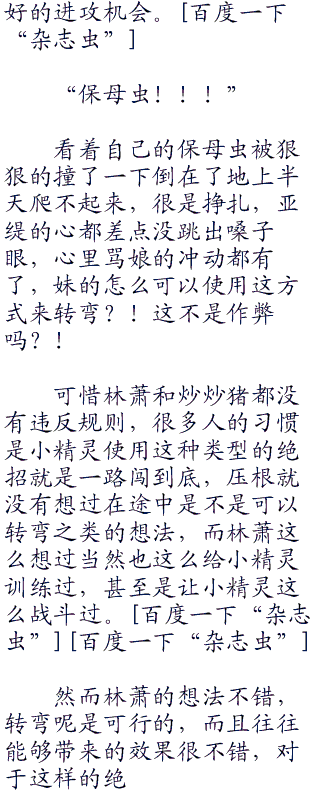 好的进攻机会。[百度一下
“杂志虫”]
“保母虫！！！”
看着自己的保母虫被狠
狠的撞了一下倒在了地上半
天爬不起来，很是挣扎，亚
缇的心都差点没跳出嗓子
眼，心里骂娘的冲动都有
了，妹的怎么可以使用这方
式来转弯？！这不是作弊
吗？！
可惜林萧和炒炒猪都没
有违反规则，很多人的习惯
是小精灵使用这种类型的绝
招就是一路闯到底，压根就
没有想过在途中是不是可以
转弯之类的想法，而林萧这
么想过当然也这么给小精灵
训练过，甚至是让小精灵这
么战斗过。[百度一下“杂志
虫”][百度一下“杂志虫”]
然而林萧的想法不错，
转弯呢是可行的，而且往往
能够带来的效果很不错，对
于这样的绝